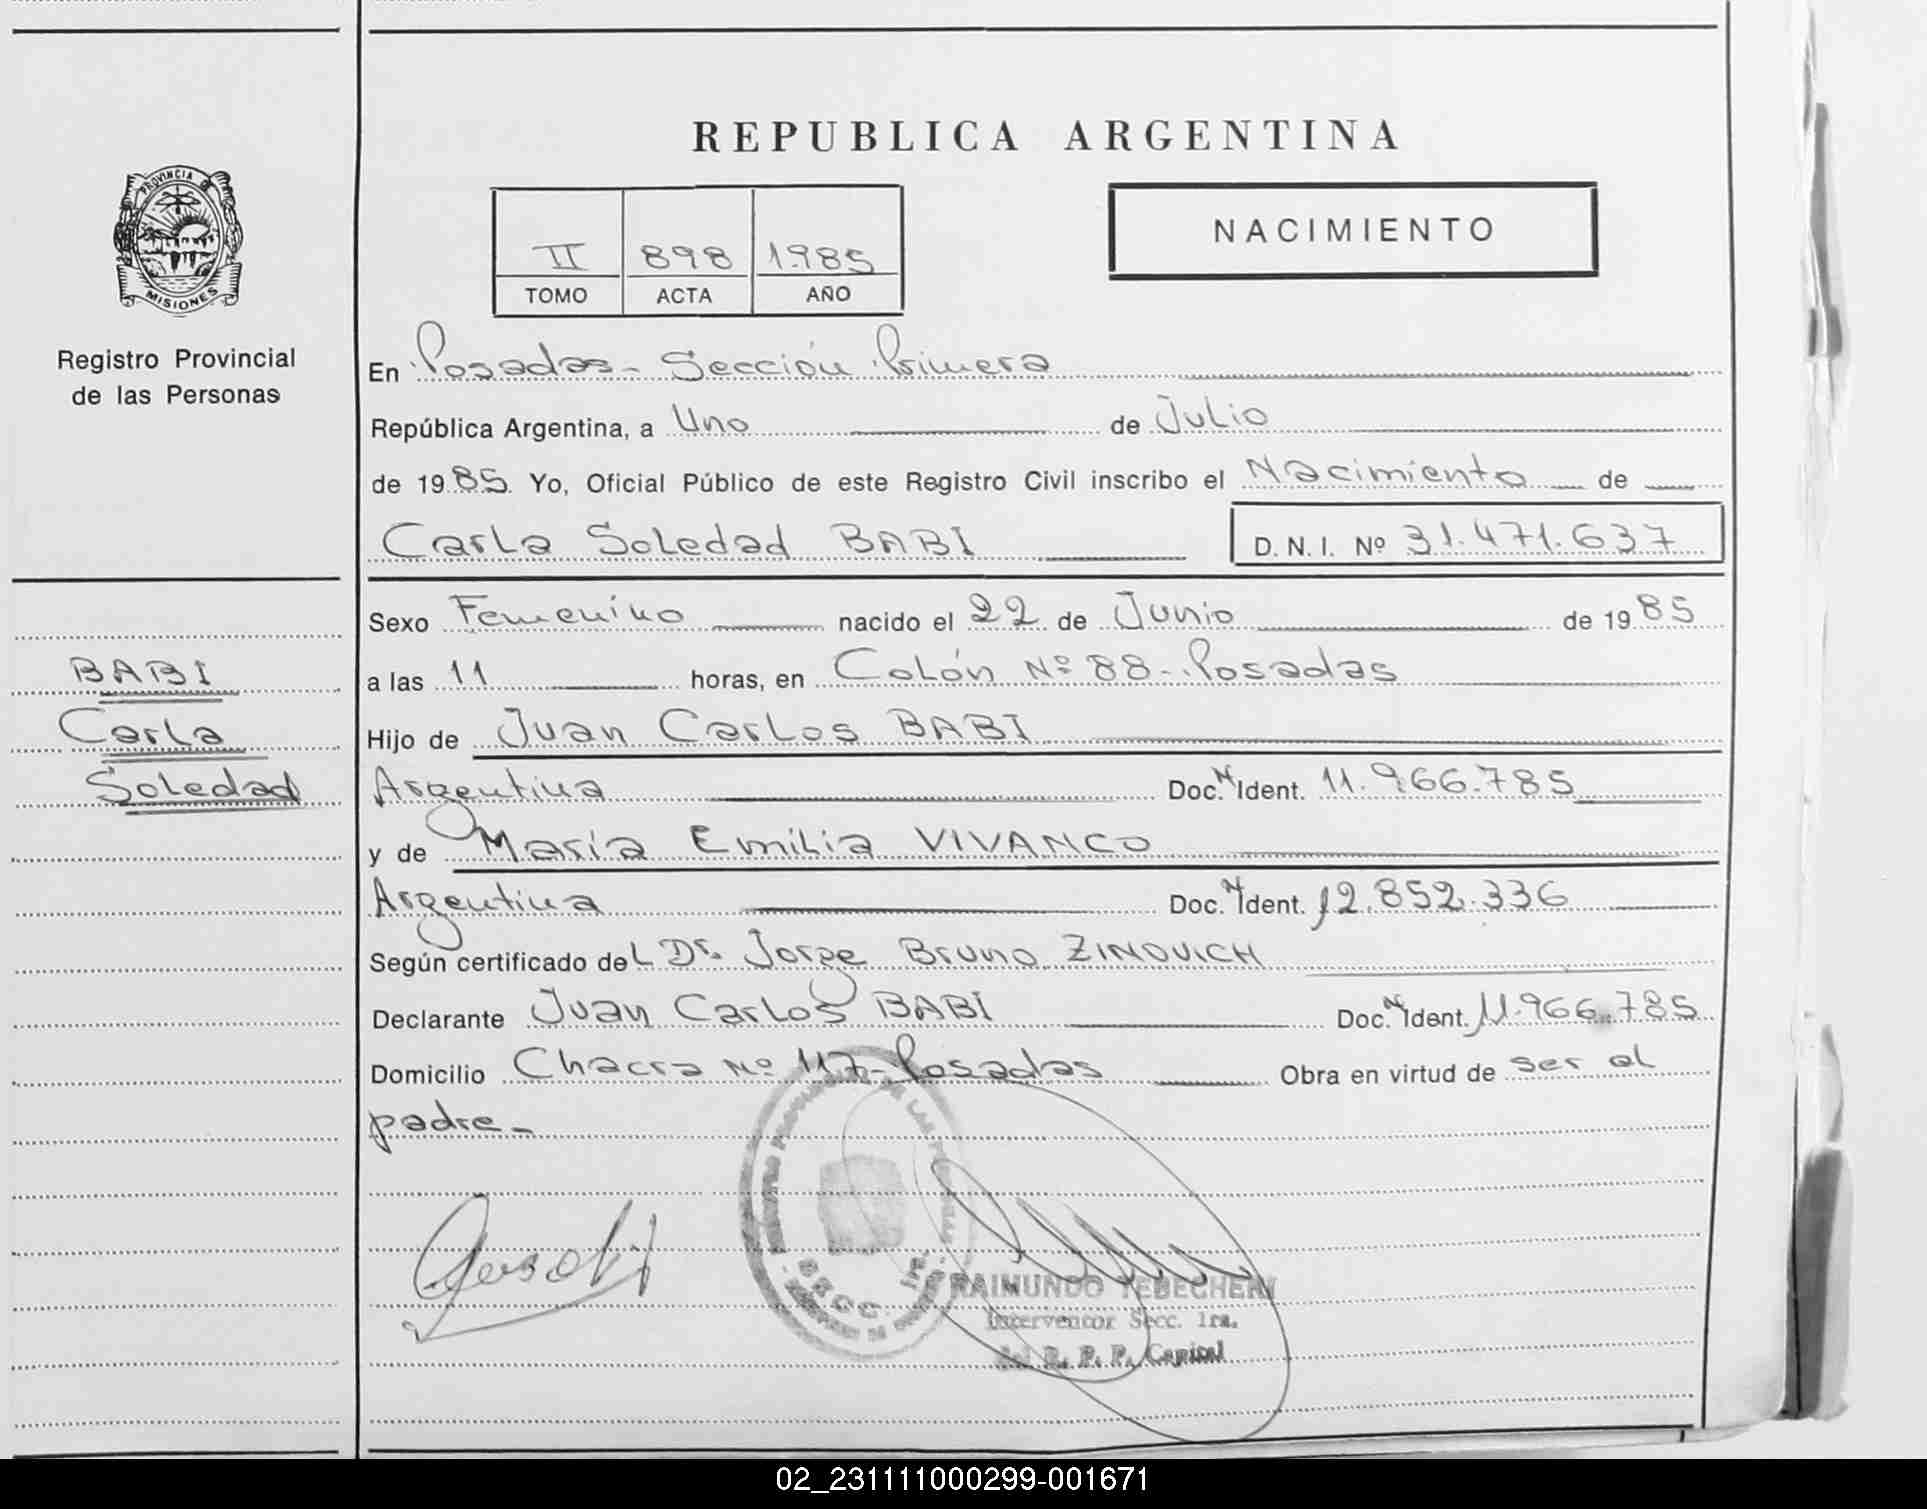 REPUBLICA ARGENTINA
PROVINCIA DE
MISIONES
Registro Provincial
de las Personas
II 898 1985
TOMO ACTA AÑO
NACIMIENTO
En Posadas - Sección Primera
República Argentina, a Uno de Julio
de 1985. Yo, Oficial Público de este Registro Civil inscribo el Nacimiento de
Carla Soledad BABI D. N. I. Nº 31.471.637
Sexo Femenino nacido el 22 de Junio de 1985
a las 11 horas, en Colón Nº 88 - Posadas
Hijo de Juan Carlos BABI
Argentina Doc. N Ident. 11.966.785
y de María Emilia VIVANCO
Argentina Doc. N Ident. 12.852.336
Según certificado del Dr. Jorge Bruno ZINOVICH
Declarante Juan Carlos BABI Doc. N Ident. 11.966.785
Domicilio Chacra Nº 117 - Posadas Obra en virtud de ser el
padre -
BABI
Carla
Soledad
SECC. 1ra.
RAIMUNDO YEBECHERI
Interventor Secc. 1ra.
del R. P. P. Capital
02_231111000299-001671